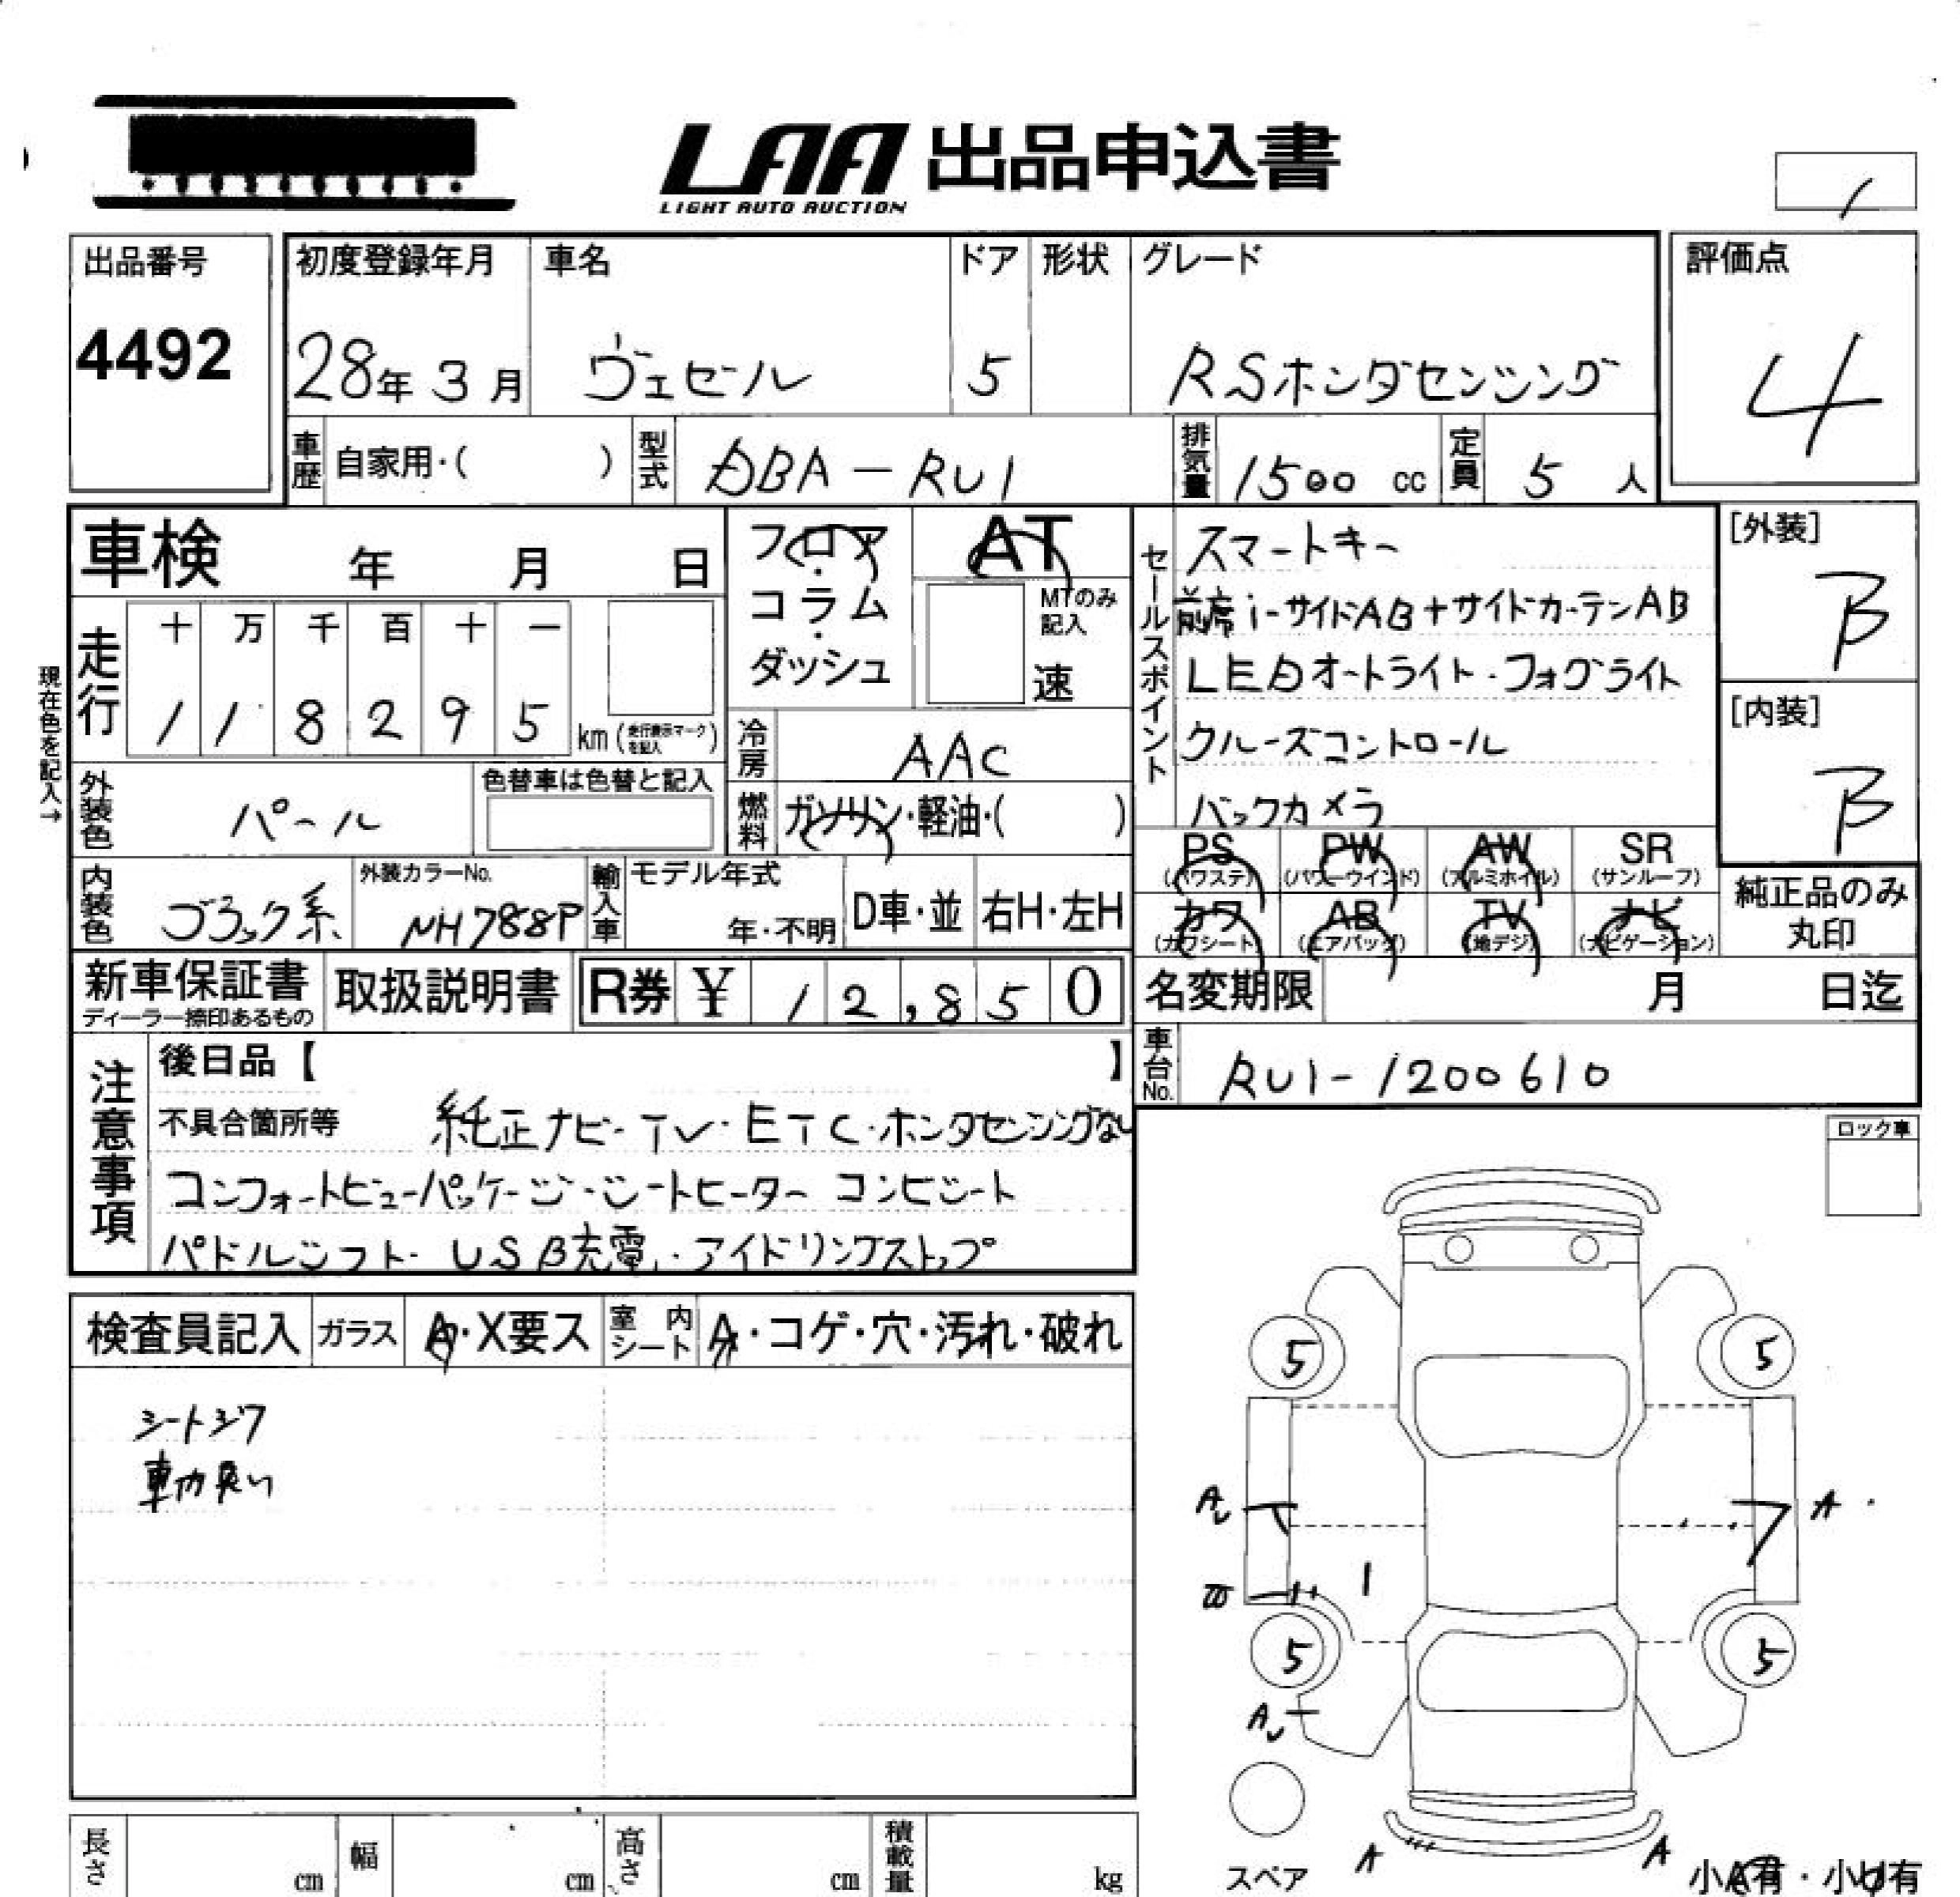 LAA 出品申込書
LIGHT AUTO AUCTION
出品番号
4492
初度登録年月
28年 3月
車名
ヴェゼル
ドア
5
形状
グレード
RSホンダセンシング
評価点
4
車歴
自家用・( )
型式
DBA-RU1
排気量
1500 cc
定員
5 人
車検 年 月 日
フロア・コラム・ダッシュ
AT
MTのみ記入
速
セールスポイント
スマートキー
前席i-サイドAB+サイドカーテンAB
LEDオートライト・フォグライト
クルーズコントロール
バックカメラ
[外装]
B
[内装]
B
現在色を記入→
走行
十 万 千 百 十 一
1 1 8 2 9 5 km (走行表示マークを記入)
冷房
AAC
外装色
パール
色替車は色替と記入
燃料
ガソリン・軽油・( )
PS (パワステ)
PW (パワーウインド)
AW (アルミホイル)
SR (サンルーフ)
カワ (カワシート)
AB (エアバッグ)
TV (地デジ)
ナビ (ナビゲーション)
純正品のみ
丸印
内装色
ブラック系
外装カラーNo.
NH788P
輸入車
モデル年式
年・不明
D車・並
右H・左H
新車保証書
ディーラー捺印あるもの
取扱説明書
R券 ¥ 12,850
名変期限 月 日迄
車台No.
RU1-1200610
注意事項
後日品【 】
不具合箇所等 純正ナビ・TV・ETC・ホンダセンシングなし
コンフォートビューパッケージ・シートヒーター コンビシート
パドルシフト・USB充電・アイドリングストップ
ロック車
検査員記入
ガラス
A・X要ス
室内シート
A・コゲ・穴・汚れ・破れ
シートシワ
車内良い
5 5
A A
1
5 5
A
スペア
A A
小A有・小U有
長さ cm
幅 cm
高さ cm
積載量 kg